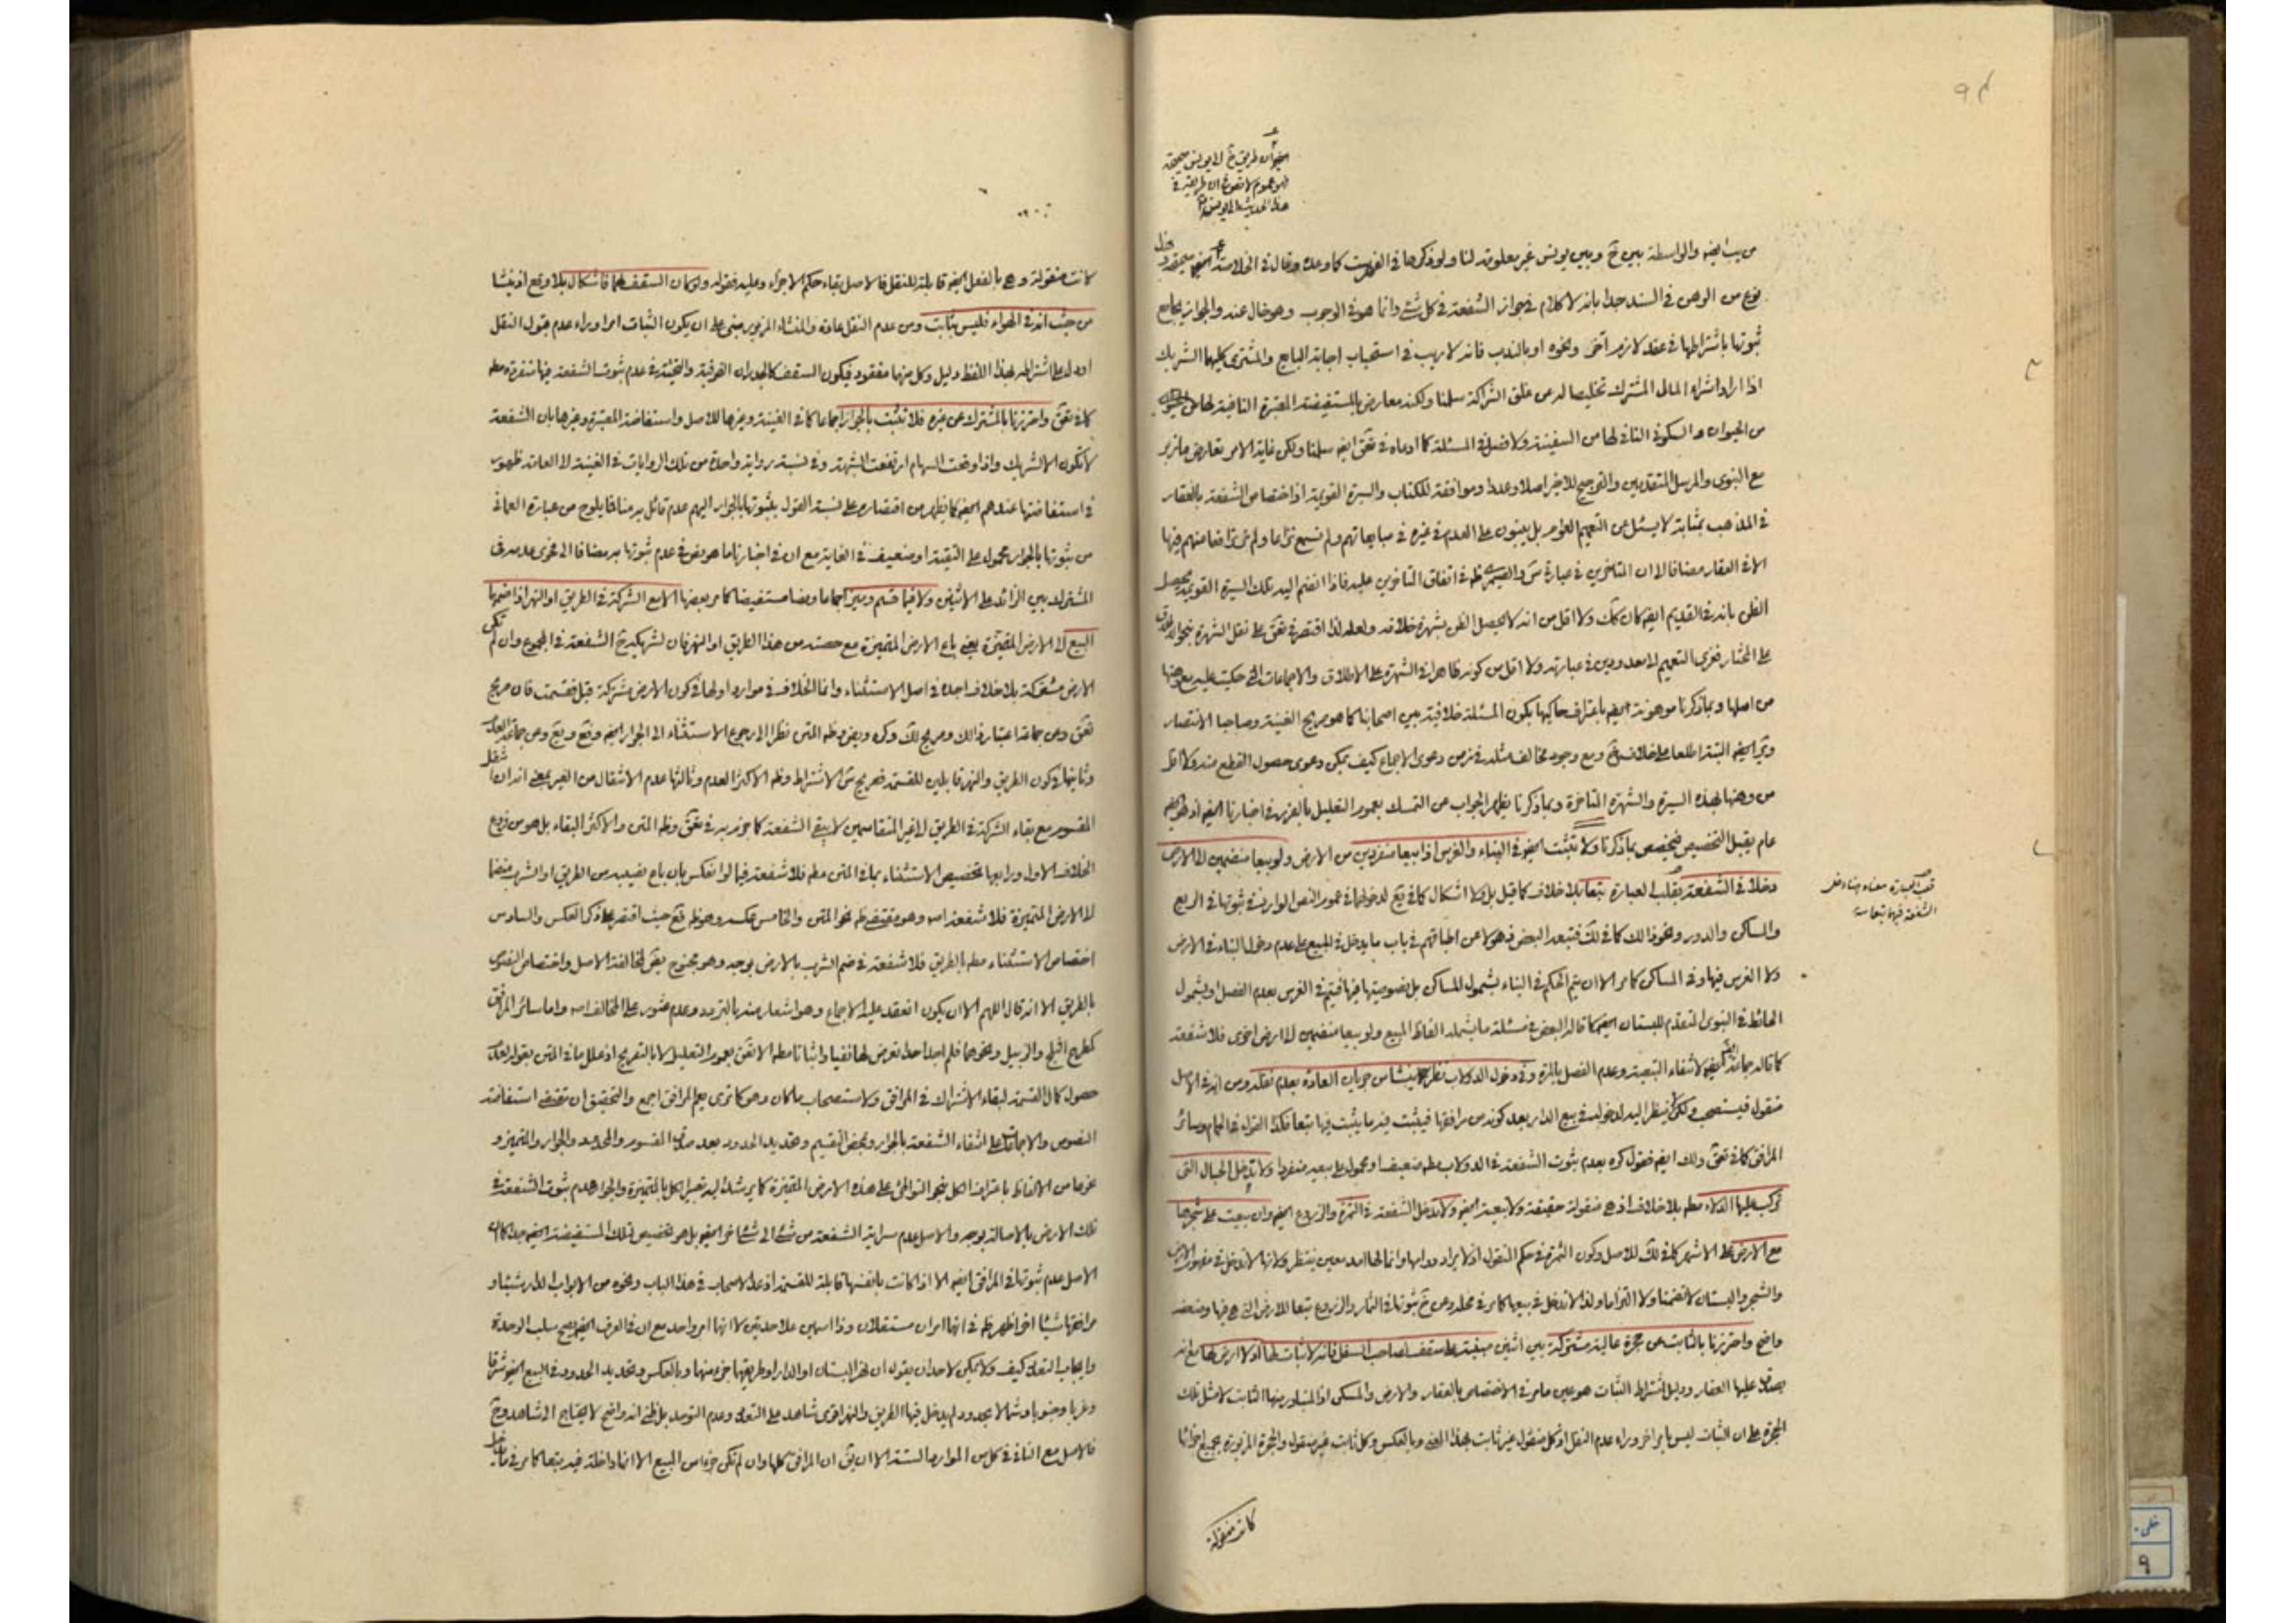 من طريق خ الى يونس صحيحة
هذا الحديث الى يونس
والواسطة بين خ وبين يونس غير معلومة لنا ولو ذكرها في الفهرست كما وعد وقال في الخلاصة
نوع من الوهن في السند جدا بانه لا كلام في جواز الشفعة في كل شئ وانما هو في الوجوب وهو خال عنه والجواز يجامع
ثبوتها باشتراطها في عقد لازم آخر ونحوه او بالندب فانه لا ريب في استحباب اجابة البايع والمشتري كليهما الشريك
اذا اراد اشراء المال المشترك تخليصا له من علق الشراكة سلمنا ولكنه معارض بالمستفيضة المعتبرة النافية لها من
من الحيوان والسكوني النافي لها من السفينة ولا فصل في المسئلة كما ادعاه في تعق ايضا سلمنا ولكن غاية الامر تعارض ما زبر
مع النبوي والمرسل المتقدمين والترجيح للاخير اصلا وعددا وموافقة للكتاب والسيرة القويمة اذ اختصاص الشفعة بالعقار
في المذهب بمثابة لا يسئل عن التعميم العوام بل يبنون على العدم في غيره في مبايعاتهم ولم نسمع نزاعا ولم نر ترافعا منهم فيها
الا في العقار مضافا الى ان المتأخرين في عبارة ظه في اتفاق المتأخرين عليه فاذا انضم اليه تلك السيرة القويمة يحصل
الظن بانه في القديم ايضا كان كك ولا اقل من انه لا يحصل الظن بشهرة خلافه ولعله لذا اقتصر في تعق على نقل الشهرة
على المختار فعزى التعميم لا معدودين في عبارته ولا اقل من كونه ظاهرا في الشهرة على الاطلاق والاجماعات التي حكيت عليه مع وهنها
من اصلها وبما ذكرنا موهونة ايضا باعتراف حاكيها بكون المسئلة خلافية بين اصحابنا كما هو صريح الغنية وصاحبا الانتصار
من وهنها بهذه السيرة والشهرة المتأخرة وبما ذكرنا يظهر الجواب عن التمسك بعموم التعليل بالضرر في اخبارنا
عام يقبل التخصيص فيخصص بما ذكرنا ولا تثبت ايضا في البناء والغرس اذا بيعا منفردين من الارض ولو بيعا منضمين الى الارض
دخلا في الشفعة بقلب العبارة تبعا بلا خلاف كما قيل بل ولا اشكال كما في تع لدخولهما في عموم النص الوارد في ثبوتها في الربع
قلب العبارة معناه
الشفعة فيهما تبعا
والمساكن والدور ونحو ذلك كما في لك فتبعه البعض ذهولا عن اطباقهم في باب ما يدخل في المبيع على عدم دخول البناء في الارض
ولا الغرس فيها وفي المساكن كما مر الا ان يتم الحكم في البناء بشمول المساكن بل بخصوصيتها فيها فيتم في الغرس بعدم الفصل او بشمول
الحائط في النبوي المتقدم للبستان ايضا كما قاله البعض في مسئلة ما يشمله الفاظ المبيع ولو بيعا منضمين الى ارض اخرى فلا شفعة
كما قاله جماعة لانتفاء التبعية وعدم الفصل بالمرة وفي دخول الدولاب نظر ينشأ من جريان العادة بعدم نقله ومن انه في الاصل
منقول فيستصحب ولكن ينظر اليه لدخوله في بيع الدار بعد كونه من مرافقها فيثبت فيه ما يثبت فيها تبعا فكذا القول في الحمام وسائر
المرافق كما في تعق ولك ايضا فقول كره بعدم ثبوت الشفعة في الدولاب مطم ضعيف او محمول على بيعه منفردا ولا تدخل الحبال التي
تركب عليها الدلاء مطم بلا خلاف اذ هي منقولة حقيقة ولا تبعية ايضا ولا تدخل الشفعة في الثمرة والزرع ايضا وان بيعت على شجرها
مع الارض على الاشهر كما في لك للاصل وكون الثمرة في حكم المنقول اذ لا يراد دوامها وانما لها امد معين ينتظر ولانها لا تدخل في مفهوم الارض
والشجر والبستان لا تضمنا ولا التزاما ولذا لا تدخل في بيعها كما مر في محله وعن خ ثبوتها في الثمار والزروع تبعا للارض التي هي فيها وضعفه
واضح واحترزنا بالثابت عن حجرة عالية مشتركة بين اثنين مبنية على سقف لصاحب السفل فانه لا ثبات لها اذ لا ارض لها مع انه
يصدق عليها العقار ودليل اشتراط الثبات هو عين ما مر في الاختصاص بالعقار والارض والمسكن اذ المتبادر منها الثابت لا مثل تلك
الحجرة على ان الثبات ليس بامر اخر وراء عدم النقل اذ كل منقول غير ثابت بهذا المعنى وبالعكس وكل ثابت غير منقول والحجرة المزبورة بجميع اجزائها
كانت منقولة
كانت منقولة وهي بالفعل ايضا قابلة للنقل فالاصل بقاء حكم الاجزاء وعليه فقوله ولو كان السقف لهما فاشكال بلا وقع اذ ينشأ
من حيث انه في الهواء فليس بثابت ومن عدم النقل عادة والمنشاء المزبور مبنى على ان يكون الثبات امرا وراء عدم قبول النقل
او يدل على اشتراطه بهذا اللفظ دليل وكل منهما مفقود فيكون السقف كالجدران الفوقية والتحتية في عدم ثبوت الشفعة فيها منفردة مطم
كما في تعق واحترزنا بالمشترك عن غيره فلا تثبت بالجوار اجماعا كما في الغنية وغيرها للاصل واستفاضة المعتبرة وغيرها بان الشفعة
لا تكون الا لشريك واذا وقعت السهام ارتفعت الشبهة وفي نسبة رواية واحدة من تلك الروايات في الغنية الى العامة ظهور
في استفاضتها عندهم ايضا كما يظهر من اقتصاره على نسبة القول بثبوتها بالجوار اليهم عدم قائل به منا فما يلوح من عبارة العماني
من ثبوتها بالجوار محمول على التقية او ضعيف في الغاية مع ان في اخبارنا ما هو نص في عدم ثبوتها به مضافا الى فحوى عدمه في
المشترك بين الزائد على الاثنين ولا فيما قسم وميز اجماعا ونصا مستفيضا كما مر بعضها الا مع الشركة في الطريق او النهر اذا ضمها
البيع الى الارض المتميزة يعني باع الارض المتميزة مع حصته من هذا الطريق او النهر فان لشريكه ح الشفعة في المجموع وان لم تكن
الارض مشتركة بلا خلاف اجده في اصل الاستثناء وانما الخلاف في موارد اولها في كون الارض مشتركة قبل فقسمت فان صريح
تعق وعن جماعة اعتبار ذلك وصريح لك وكره وبعض وظه المتن نظرا الى رجوع الاستثناء الى الجوار ايضا
وثانيها في كون الطريق والنهر قابلين للقسمة فصريح الاشتراط وظه الاكثر العدم وثالثها عدم الانتقال من الغير بمعنى انه ان انتقل
المقسوم مع بقاء الشركة في الطريق الى غير المتقاسمين لا يبقى الشفعة كما جزم به في تعق وظه المتن والاكثر البقاء بل هو من فروع
الخلاف الاول ورابعها تخصيص الاستثناء بما في المتن مطم فلا شفعة فيما لو انعكس بان باع نصيبه من الطريق او الشرب منضما
الى الارض المتميزة فلا شفعة وهو مقتضى ظه نحو المتن والخامس عكسه وهو ظه تع حيث اقتصر على ذكر العكس والسادس
اختصاص الاستثناء مطم بالطريق فلا شفعة في ضم الشرب بالارض بوجه وهو مجنوح تعق لمخالفة الاصل واختصاص النصوص
بالطريق الا انه قال اللهم الا ان يكون انعقد عليه الاجماع وهو اشعار منه بالتردد وعدم عثوره على المخالف واما سائر المرافق
كمطرح الثلج والزبيل ونحوهما فلم اجد احدا تعرض لها نفيا واثباتا مطم الا تعق بعموم التعليل لا بالتصريح اذ علل ما في المتن بقوله لعدم
حصول كمال القسمة لبقاء الاشتراك في المرافق ولاستصحاب ما كان وهو كما ترى يعم المرافق اجمع والتحقيق ان مقتضى استفاضة
النصوص والاجماعات على انتفاء الشفعة بالجوار وبمحض التقسيم وتحديد الحدود بعد صدق المقسوم والمحدد والجوار والتميز و
غيرها من الالفاظ باعتراف الكل بنحو التواطئ على هذه الارض المتميزة كما يرشد اليه تعبير الكل بالمتميزة والجوار عدم ثبوت الشفعة في
تلك الارض بالاصالة بوجه والاصل عدم سراية الشفعة من شئ الى شئ اخر ايضا بل هو تخصيص لتلك المستفيضة ايضا جدا كما ان
الاصل عدم ثبوتها في المرافق ايضا الا اذا كانت بانفسها قابلة للقسمة اذ عد الاصحاب في هذا الباب ونحوه من الابواب الدار شيئا و
مرافقها شيئا اخر اظهر ظه في انهما امران مستقلان وذا اسمين علاحدتين لا انها امر واحد مع ان في العرف ايضا يصح سلب الوحدة
وايجاب التعدد كيف ولا يمكن لاحد ان يقول ان نهر البستان او الدار او طريقها جزء منها وبالعكس وتحديد الحدود في البيع ايضا شرقا
وغربا وجنوبا وشمالا بحدود لم يدخل فيها الطريق والنهر اقوى شاهد على التعدد وعدم التوحد بل ظنى انه واضح لا يحتاج الى شاهد وح
فالاصل مع النافي في كل من الموارد الستة الا ان يق ان المرافق كلها وان لم تكن جزءا من المبيع الا انها داخلة فيه تبعا كما مر في